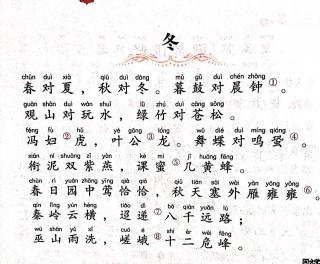 冬
chūn duì xià qiū duì dōng mù gǔ duì chén zhōng
春对夏，秋对冬。暮鼓对晨钟①。
guān shān duì wán shuǐ lǜ zhú duì cāng sōng
观山对玩水，绿竹对苍松。
féng fù hǔ yè gōng lóng wǔ dié duì míng qióng
冯妇②虎，叶公③龙。舞蝶对鸣蛩④。
xián ní shuāng zǐ yàn kè mì jǐ huáng fēng
衔泥双紫燕，课蜜⑤几黄蜂。
chūn rì yuán zhōng yīng qià qià qiū tiān sài wài yàn yōng yōng
春日园中莺恰恰，秋天塞外雁雍雍⑥。
qín lǐng yún héng tiáo dì bā qiān yuǎn lù
秦岭云横，迢递⑦八千远路；
wū shān yǔ xǐ cuó é shí èr wēi fēng
巫山雨洗，嵯峨⑧十二危峰。